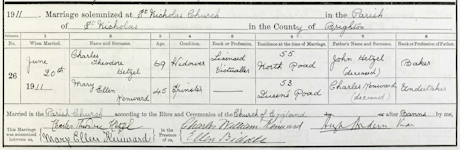 1911. Marriage solemnized at St. Nicholas Church in the Parish
of St. Nicholas in the County of Brighton
No. When Married. Name and Surname. Age. Condition. Rank or Profession. Residence at the time of Marriage. Father's Name and Surname. Rank or Profession of Father.
26 June 20th 1911 Charles Theodore Hetzel 69 Widower Licensed Victualler 55 North Road John Hetzel (deceased) Baker
Mary Ellen Kenward 45 Spinster 53 Queens Road Charles Kenward (deceased) Undertaker
Married in the Parish Church according to the Rites and Ceremonies of the Church of England after Banns by me,
This Marriage was solemnized between us, Charles Theodore Hetzel
Mary Ellen Kenward
in the Presence of us, Charles William Kenward
Ellen